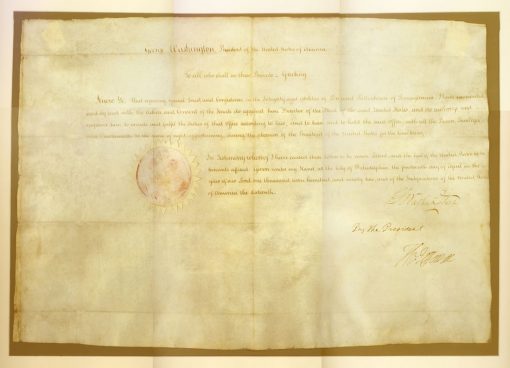 George Washington President of the United States of America
To all who shall see these Presents Greeting
Know Ye, That reposing special Trust and Confidence in the Integrity and Abilities of David Rittenhouse of Pennsylvania I have nominated
and by and with the Advice and Consent of the Senate do appoint him Director of the Mint of the said United States and do authorize and
empower him to execute and fulfil the Duties of that Office according to Law; and to have and to hold the said Office, with all the Powers Privileges
and Emoluments to the same of right appertaining, during the pleasure of the President of the United States for the time being.
In Testimony whereof I have caused these Letters to be made Patent, and the Seal of the United States to be
hereunto affixed Given under my Hand at the City of Philadelphia the fourteenth day of April in the
year of our Lord one thousand seven hundred and ninety two, and of the Independence of the United States
of America the Sixteenth.
G Washington
By the President
Th: Jefferson